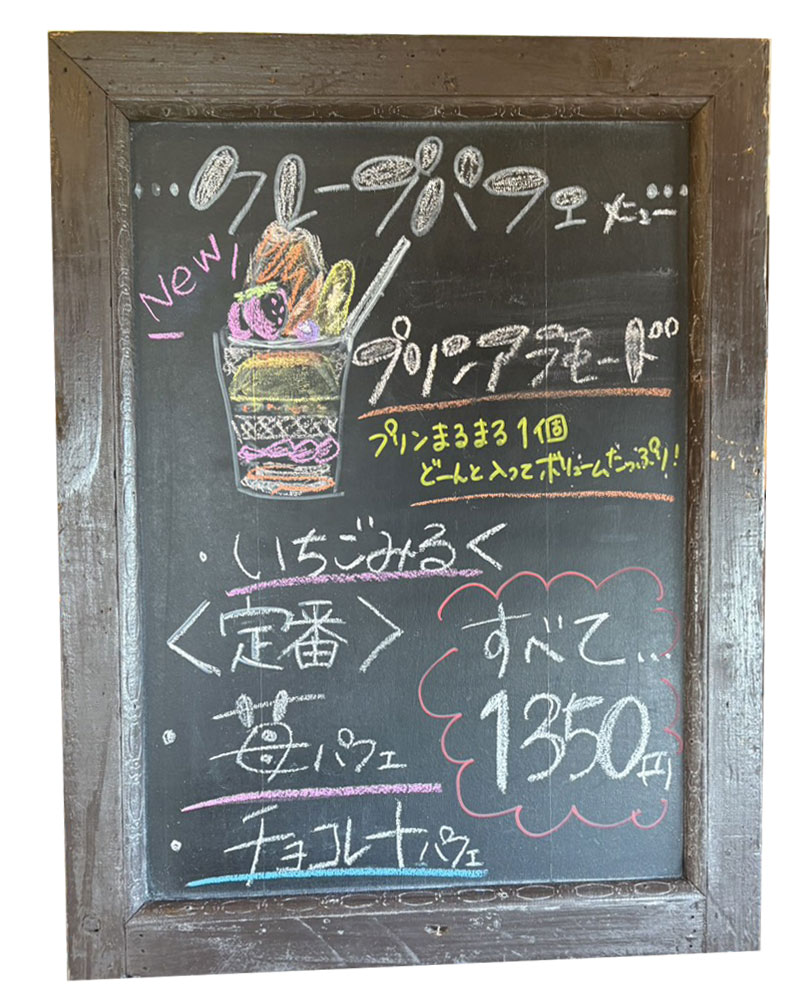 クレープパフェメニュー
New
プリンアラモード
プリンまるまる1個
どーんと入ってボリュームたっぷり!
・いちごみるく
〈定番〉
すべて...
1350円
・苺パフェ
・チョコレートパフェ